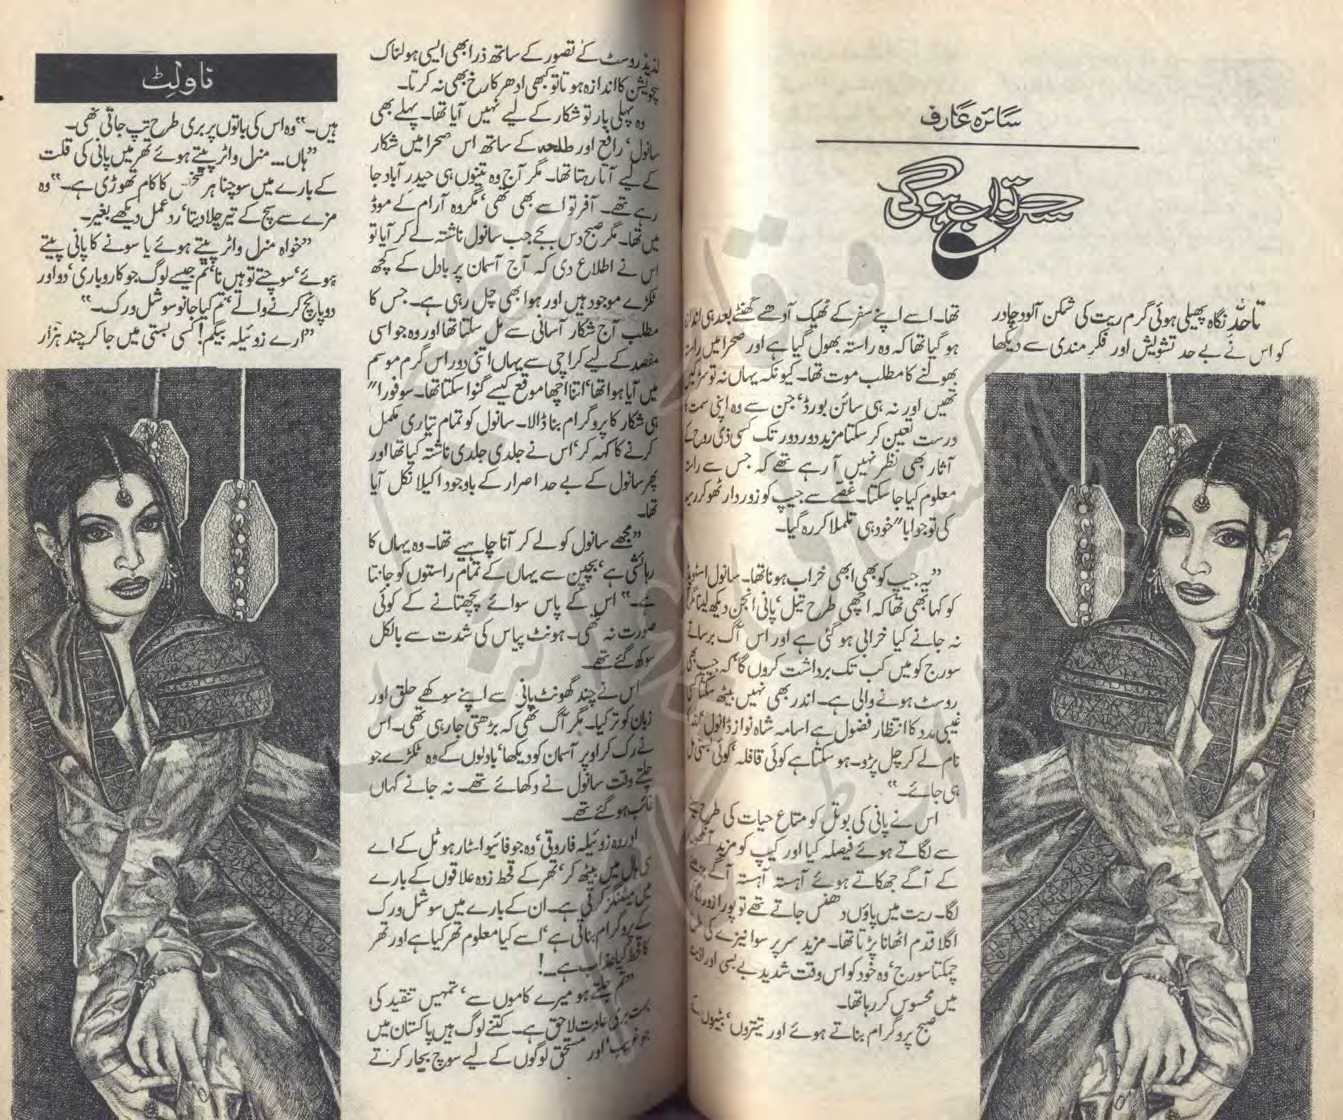 سائرہ عارف
تاحدِّ نگاہ پھیلی ہوئی گرم ریت کی شکن آلود چادر
کو اس نے بے حد تشویش اور فکر مندی سے دیکھا
تھا۔ اسے اپنے سفر کے ٹھیک آدھے گھنٹے بعد ہی
ہو گیا تھا کہ وہ راستہ بھول گیا ہے اور صحرا میں راستہ
بھولنے کا مطلب موت تھا۔ کیونکہ یہاں نہ تو سڑکیں
تھیں اور نہ ہی سائن بورڈ، جن سے وہ اپنی سمت
درست تعین کر سکتا مزید دور دور تک کسی ذی روح کے
آثار بھی نظر نہیں آ رہے تھے کہ جس سے راستہ
معلوم کیا جا سکتا۔ غصے سے جیپ کو زور دار ٹھوکر رسید
کی تو جواباً خود ہی تلملا کر رہ گیا۔
”یہ جیپ کو بھی ابھی خراب ہونا تھا۔ سانول
کو کہا بھی تھا کہ اچھی طرح تیل، پانی انجن دیکھ لینا
نہ جانے کیا خرابی ہو گئی ہے اور اس آگ برساتے
سورج کو میں کب تک برداشت کروں گا، کہ جیپ بھی
روسٹ ہونے والی ہے۔ اندر بھی نہیں بیٹھ سکتا
غیبی مدد کا انتظار فضول ہے اسامہ شاہ نواز
نام لے کر چل پڑو۔ ہو سکتا ہے کوئی قافلہ، کوئی بستی مل
ہی جائے۔“
اس نے پانی کی بوتل کو متاع حیات کی طرح
سے لگاتے ہوئے فیصلہ کیا اور کیپ کو مزید آنکھوں
کے آگے جھکاتے ہوئے آہستہ آہستہ آگے
لگا۔ ریت میں پاؤں دھنس جاتے تھے تو پورا زور
اگلا قدم اٹھانا پڑتا تھا۔ مزید سر پر سوا نیزے کی طرح
چمکتا سورج، وہ خود کو اس وقت شدید بے بسی اور
میں محسوس کر رہا تھا۔
صبح پروگرام بناتے ہوئے اور تیتروں، بٹیروں کے
لذیذ روسٹ کے تصور کے ساتھ ذرا بھی ایسی ہولناک
سچویشن کا اندازہ ہوتا تو کبھی ادھر کا رخ بھی نہ کرتا۔
وہ پہلی بار تو شکار کے لیے نہیں آیا تھا۔ پہلے بھی
سانول، رافع اور طلحہ کے ساتھ اس صحرا میں شکار
کے لیے آتا رہتا تھا۔ مگر آج وہ تینوں ہی حیدر آباد جا
رہے تھے۔ آفر تو اسے بھی تھی، مگر وہ آرام کے موڈ
میں تھا۔ مگر صبح دس بجے جب سانول ناشتہ لے کر آیا تو
اس نے اطلاع دی کہ آج آسمان پر بادل کے کچھ
ٹکڑے موجود ہیں اور ہوا بھی چل رہی ہے۔ جس کا
مطلب آج شکار آسانی سے مل سکتا تھا اور وہ جو اسی
مقصد کے لیے کراچی سے یہاں اتنی دور اس گرم موسم
میں آیا ہوا تھا، اتنا اچھا موقع کیسے گنوا سکتا تھا۔ سو فوراً
ہی شکار کا پروگرام بنا ڈالا۔ سانول کو تمام تیاری مکمل
کرنے کا کہہ کر، اس نے جلدی جلدی ناشتہ کیا تھا اور
پھر سانول کے بے حد اصرار کے باوجود اکیلا نکل آیا
تھا۔
”مجھے سانول کو لے کر آنا چاہیے تھا۔ وہ یہاں کا
رہائشی ہے، بچپن سے یہاں کے تمام راستوں کو جانتا
ہے۔“ اس کے پاس سوائے پچھتانے کے کوئی
صورت نہ تھی۔ ہونٹ پیاس کی شدت سے بالکل
سوکھ گئے تھے۔
اس نے چند گھونٹ پانی سے اپنے سوکھے حلق اور
زبان کو تر کیا۔ مگر آگ تھی کہ بڑھتی جا رہی تھی۔ اس
نے رک کر اوپر آسمان کو دیکھا، بادلوں کے وہ ٹکڑے جو
چلتے وقت سانول نے دکھائے تھے۔ نہ جانے کہاں
غائب ہو گئے تھے۔
اور وہ زوئیلہ فاروقی، وہ جو فائیو اسٹار ہوٹل کے اے
سی ہال میں بیٹھ کر، تھر کے قحط زدہ علاقوں کے بارے
میں میٹنگز کرتی ہے۔ ان کے بارے میں سوشل ورک
کے پروگرام بناتی ہے، اسے کیا معلوم تھر کیا ہے اور تھر
کا قحط کیا عذاب ہے۔!
”تم جلتے ہو میرے کاموں سے، تمہیں تنقید کی
بہت بری عادت لاحق ہے۔ کتنے لوگ ہیں پاکستان میں
جو غریب، اور مستحق لوگوں کے لیے سوچ بچار کرتے
ناولٹ
ہیں۔“ وہ اس کی باتوں پر بری طرح تپ جاتی تھی۔
”ہاں... منرل واٹر پیتے ہوئے تھر میں پانی کی قلت
کے بارے میں سوچنا ہر شخص کا کام تھوڑی ہے۔“ وہ
مزے سے سچ کے تیر چلا دیتا، رد عمل دیکھے بغیر۔
”خواہ منرل واٹر پیتے ہوئے یا سونے کا پانی پیتے
ہوئے، سوچتے تو ہیں نا، تم جیسے لوگ جو کاروباری، دو اور
دو پانچ کرنے والے، تم کیا جانو سوشل ورک۔“
”ارے زوئیلہ بیگم! کسی بستی میں جا کر چند ہزار